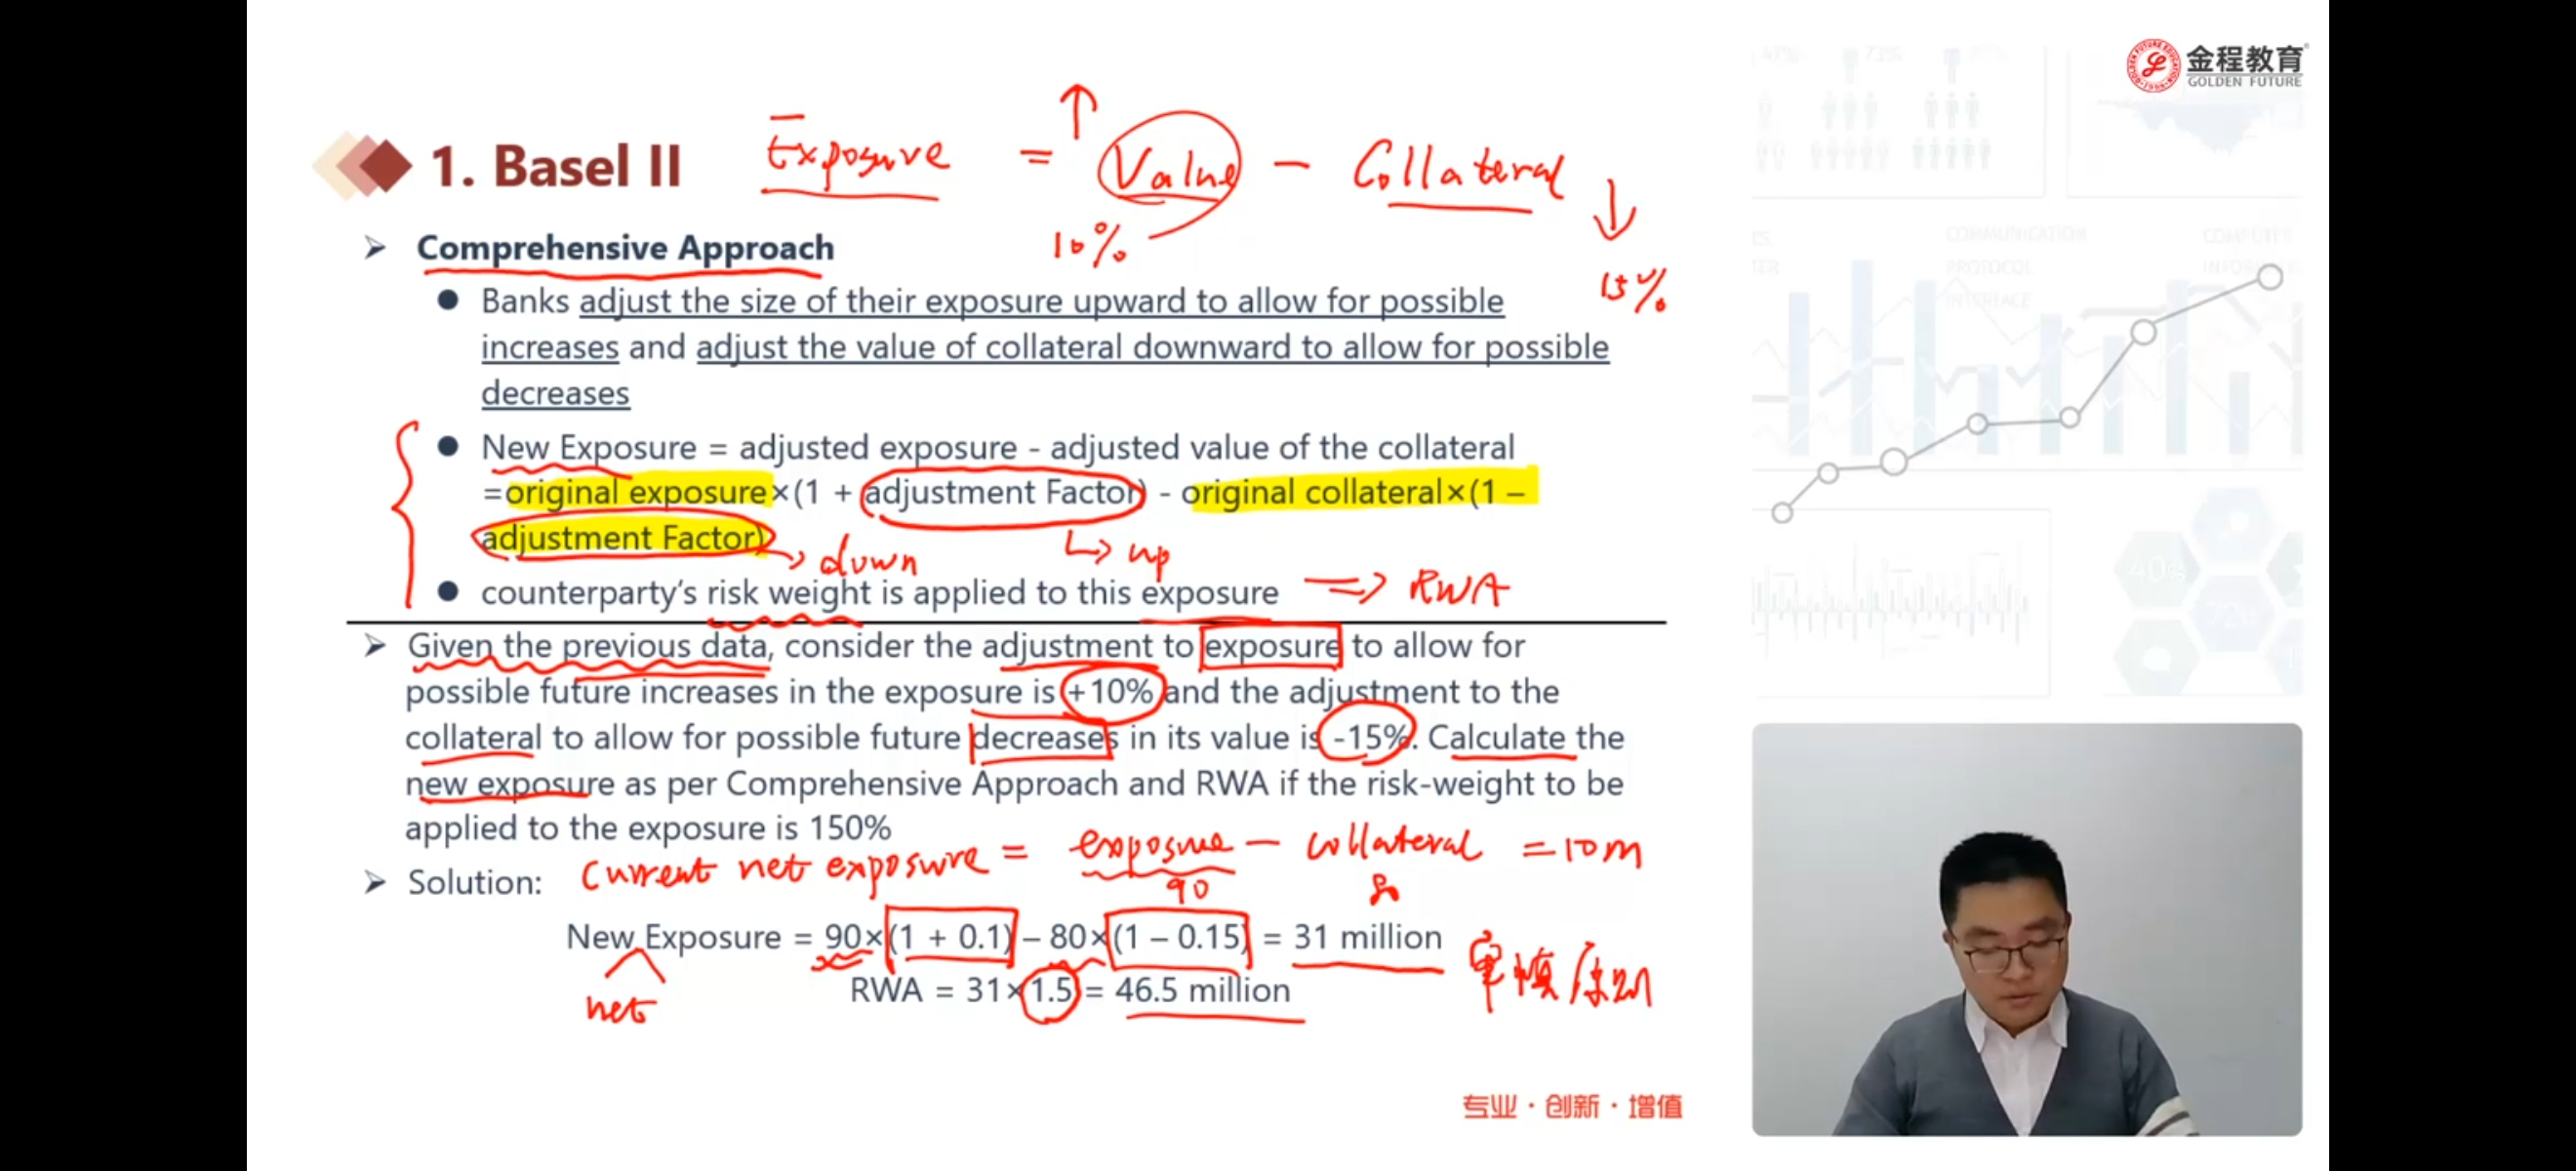 金程教育
GOLDEN FUTURE
1. Basel II
Exposure = Value - Collateral
10%
15%
➢ Comprehensive Approach
● Banks adjust the size of their exposure upward to allow for possible
increases and adjust the value of collateral downward to allow for possible
decreases
● New Exposure = adjusted exposure - adjusted value of the collateral
=original exposure×(1 + adjustment Factor) - original collateral×(1 –
adjustment Factor)
down
up
● counterparty's risk weight is applied to this exposure => RWA
➢ Given the previous data, consider the adjustment to exposure to allow for
possible future increases in the exposure is +10% and the adjustment to the
collateral to allow for possible future decreases in its value is -15%. Calculate the
new exposure as per Comprehensive Approach and RWA if the risk-weight to be
applied to the exposure is 150%
➢ Solution:
Current net exposure = exposure - collateral = 10m
90
80
New Exposure = 90×(1 + 0.1) – 80×(1 – 0.15) = 31 million
net
RWA = 31×1.5 = 46.5 million
专业·创新·增值